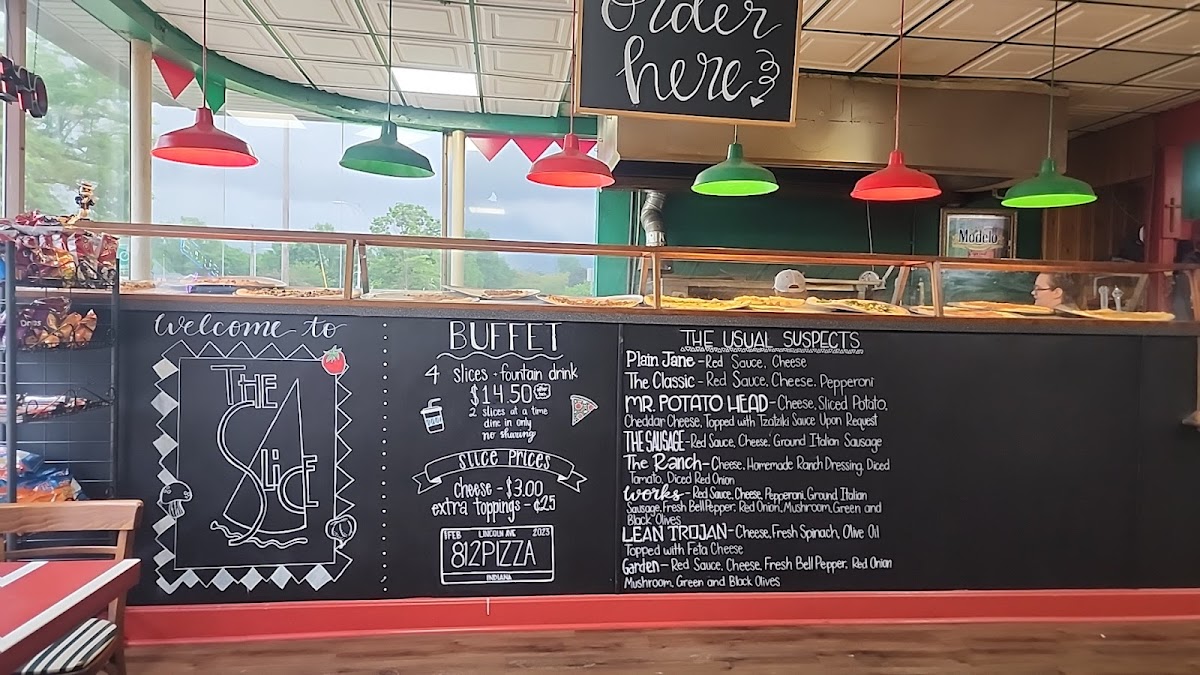 Order
here
Modelo
Welcome to
THE
SLICE
BUFFET
4 slices + fountain drink
$14.50
2 slices at a time
dine in only
no sharing
Slice Prices
cheese - $3.00
extra toppings - ¢25
1 FEB LINCOLN AVE 2023
812PIZZA
INDIANA
THE USUAL SUSPECTS
Plain Jane - Red Sauce, Cheese
The Classic - Red Sauce, Cheese, Pepperoni
MR. POTATO HEAD - Cheese, Sliced Potato,
Cheddar Cheese, Topped with Tzatziki Sauce Upon Request
THE SAUSAGE - Red Sauce, Cheese, Ground Italian Sausage
The Ranch - Cheese, Homemade Ranch Dressing, Diced
Tomato, Diced Red Onion
Works - Red Sauce, Cheese, Pepperoni, Ground Italian
Sausage, Fresh Bell Pepper, Red Onion, Mushroom, Green and
Black Olives
LEAN TROJAN - Cheese, Fresh Spinach, Olive Oil
Topped with Feta Cheese
Garden - Red Sauce, Cheese, Fresh Bell Pepper, Red Onion
Mushroom, Green and Black Olives